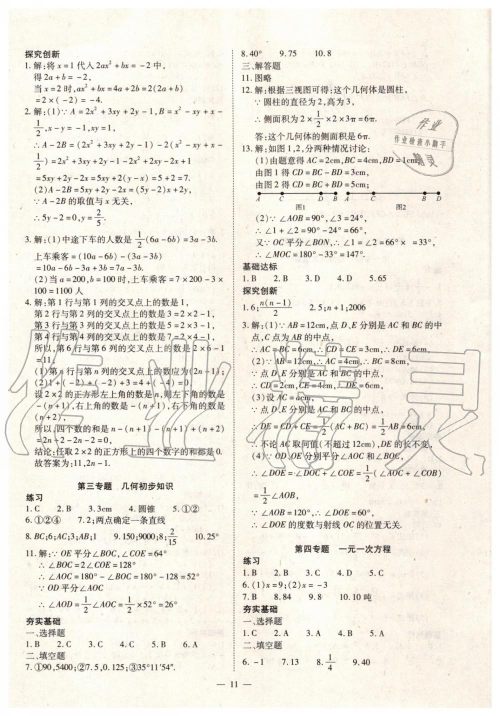 探究创新
1.解:将x=1代入2ax²+bx=-2中,
得2a+b=-2,
当x=2时,ax²+bx=4a+2b=2(2a+b)
=2×(-2)=-4.
2.解:(1)∵A=2x²+3xy+2y-1,B=x²-xy+x-
1/2,x-y=-1,xy=1,
∴A-2B=(2x²+3xy+2y-1)-2(x²-xy+x-
1/2)=2x²+3xy+2y-1-2x²+2xy-2x+1
=5xy+2y-2x=5xy+2(y-x)=5+2=7.
(2)A-2B=5xy+2y-2x=(5y-2)x+2y,
∵A-2B的取值与x无关,
∴5y-2=0,y=2/5.
3.解:(1)中途下车的人数是1/2(6a-6b)=3a-3b.
上车乘客=(10a-6b)-(3a-3b)
=10a-6b-3a+3b=7a-3b.
(2)当a=200,b=100时,上车乘客=7×200-3×
100=1100人
4.解:第1行与第1列的交叉点上的数是1,
第2行与第2列的交叉点上的数是3=2×2-1,
第3行与第3列的交叉点上的数是5=2×3-1,
第4行与第4列的交叉点上的数是7=2×4-1,
所以,第6行与第6列的交叉点上的数是2×6-1
=11,
(1)第n行与第n列的交叉点上的数应为(2n-1);
(2)1+(-2)+(-2)+3=4+(-4)=0
设2×2的正方形左上角的数是n,则左下角的数是
-(n+1),右上角的数是-(n+1),右下角的数是
(n+2),
所以,四个数的和是n-(n+1)-(n+1)+(n+2)
=2n-2-2n-2=0,
结论:任取2×2的正方形上的四个数字的和都是0.
故答案为:11,2n-1.
第三专题 几何初步知识
练习
1.C 2.B 3.3cm 4.圆锥 5.①②
6.①②④ 7.2;两点确定一条直线
8.BC;6;AC;3;AB;1 9.150;9000;8;2/15 10.25°
11.解:∵OE平分∠BOC,∠COE=64°
∴∠BOC=2∠COE=128°
∴∠AOC=180°-∠BOC=180°-128=52°
∵OD平分∠AOC
∴∠AOD=1/2∠AOC=1/2×52°=26°
夯实基础
一、选择题
1.B 2.C 3.B 4.C 5.C 6.C
二、填空题
7.①90,5400;②7.5,0.125;③35°11′54″.
8.40° 9.75 10.8
三、解答题
11.图略
12.解:根据三视图可得:这个几何体是圆柱,
∵圆柱的直径为2,高为3,
∴侧面积为2×1/2×2×3π=6π.
答:这个几何体的侧面积是6π.
13.解:如图1,2,分两种情况讨论:
(1)由题意得AC=2cm,BC=4cm,BD=1cm,
由图1得CD=BC-BD=3cm,
由图2得CD=BC+BD=5cm,
图1 图2
(2)∵∠AOB=90°,∠3=24°,
∴∠1+∠2=90°-24°=66°,
又∵OC平分∠BON,∴∠1=∠2=66°× =33°,
∴∠MOC=180°-33°=147°.
基础达标
1.B 2.B 3.D 4.D 5.65
探究创新
1.6;n(n-1)/2 2.5;n+1;2006
3.解:(1)∵AB=12cm,点D、E分别是AC和BC的中
点,C点为AB的中点,
∴AC=BC=6cm,∴CD=CE=3cm,∴DE=6cm,
(2)∵AB=12cm,∴AC=4cm,∴BC=8cm,
∵点D、E分别是AC和BC的中点,
∴CD=2cm,CE=4cm,∴DE=6cm,
(3)设AC=acm,
∵点D、E分别是AC和BC的中点,
∴DE=CD+CE=1/2(AC+BC)=1/2AB=6cm,
∴不论AC取何值(不超过12cm),DE的长不变,
(4)∵OD、OE分别平分∠AOC和∠BOC,
∴∠DOE=∠DOC+∠COE=1/2(∠AOC+∠COB)
=1/2∠AOB,
∵∠AOB=120°,∴∠DOE=60°,
∴∠DOE的度数与射线OC的位置无关.
第四专题 一元一次方程
练习
1.B 2.B 3.C 4.D 5.A
6.(1)x=9;(2)x=-3
7.B 8.84 9.8 10.10吨
夯实基础
一、选择题
1.C 2.A 3.B 4.D 5.A
二、填空题
6.-1 7.13 8.1/4 9.40
— 11 —
作业
作业检查小助手